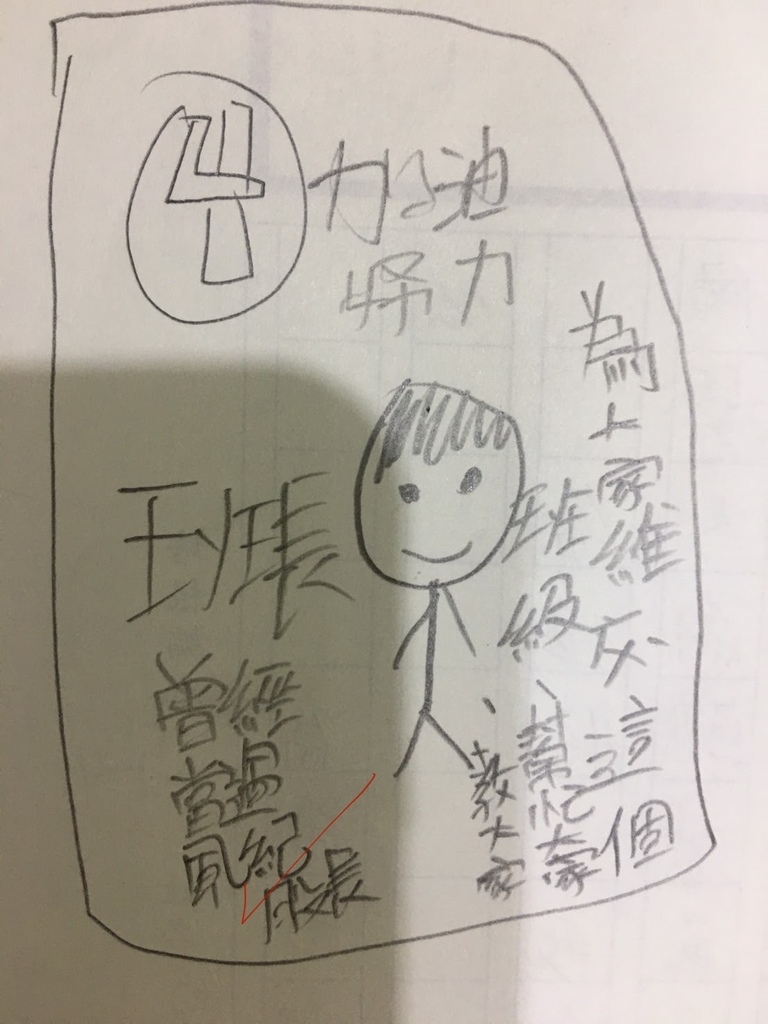 4
加油
努力
班長
曾經
當過
風紀
股長
為大家維這個
班級、幫忙大家
、教大家